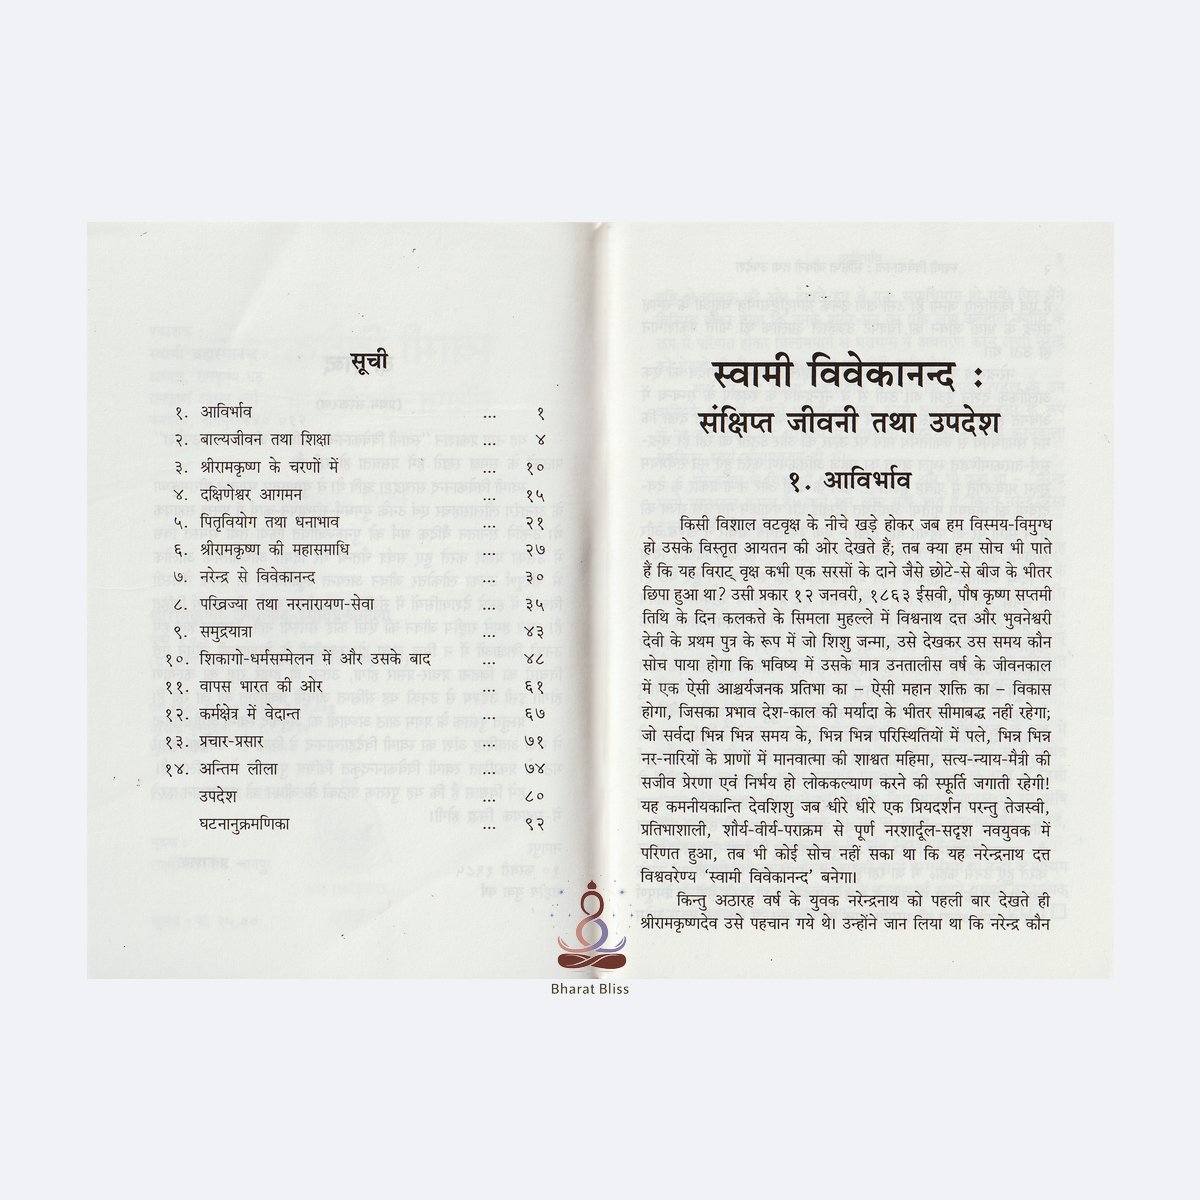 सूची
१. आविर्भाव ... १
२. बाल्यजीवन तथा शिक्षा ... ४
३. श्रीरामकृष्ण के चरणों में ... १०
४. दक्षिणेश्वर आगमन ... १५
५. पितृवियोग तथा धनाभाव ... २१
६. श्रीरामकृष्ण की महासमाधि ... २७
७. नरेन्द्र से विवेकानन्द ... ३०
८. परिव्रज्या तथा नरनारायण-सेवा ... ३५
९. समुद्रयात्रा ... ४३
१०. शिकागो-धर्मसम्मेलन में और उसके बाद ... ४८
११. वापस भारत की ओर ... ६१
१२. कर्मक्षेत्र में वेदान्त ... ६७
१३. प्रचार-प्रसार ... ७१
१४. अन्तिम लीला ... ७४
उपदेश ... ८०
घटनानुक्रमणिका ... ९२
स्वामी विवेकानन्द :
संक्षिप्त जीवनी तथा उपदेश
१. आविर्भाव
किसी विशाल वटवृक्ष के नीचे खड़े होकर जब हम विस्मय-विमुग्ध
हो उसके विस्तृत आयतन की ओर देखते हैं; तब क्या हम सोच भी पाते
हैं कि यह विराट् वृक्ष कभी एक सरसों के दाने जैसे छोटे-से बीज के भीतर
छिपा हुआ था? उसी प्रकार १२ जनवरी, १८६३ ईसवी, पौष कृष्ण सप्तमी
तिथि के दिन कलकत्ते के सिमला मुहल्ले में विश्वनाथ दत्त और भुवनेश्वरी
देवी के प्रथम पुत्र के रूप में जो शिशु जन्मा, उसे देखकर उस समय कौन
सोच पाया होगा कि भविष्य में उसके मात्र उनतालीस वर्ष के जीवनकाल
में एक ऐसी आश्चर्यजनक प्रतिभा का – ऐसी महान शक्ति का – विकास
होगा, जिसका प्रभाव देश-काल की मर्यादा के भीतर सीमाबद्ध नहीं रहेगा;
जो सर्वदा भिन्न भिन्न समय के, भिन्न भिन्न परिस्थितियों में पले, भिन्न भिन्न
नर-नारियों के प्राणों में मानवात्मा की शाश्वत महिमा, सत्य-न्याय-मैत्री की
सजीव प्रेरणा एवं निर्भय हो लोककल्याण करने की स्फूर्ति जगाती रहेगी!
यह कमनीयकान्ति देवशिशु जब धीरे धीरे एक प्रियदर्शन परन्तु तेजस्वी,
प्रतिभाशाली, शौर्य-वीर्य-पराक्रम से पूर्ण नरशार्दूल-सदृश नवयुवक में
परिणत हुआ, तब भी कोई सोच नहीं सका था कि यह नरेन्द्रनाथ दत्त
विश्ववरेण्य ‘स्वामी विवेकानन्द’ बनेगा।
किन्तु अठारह वर्ष के युवक नरेन्द्रनाथ को पहली बार देखते ही
श्रीरामकृष्णदेव उसे पहचान गये थे। उन्होंने जान लिया था कि नरेन्द्र कौन
Bharat Bliss